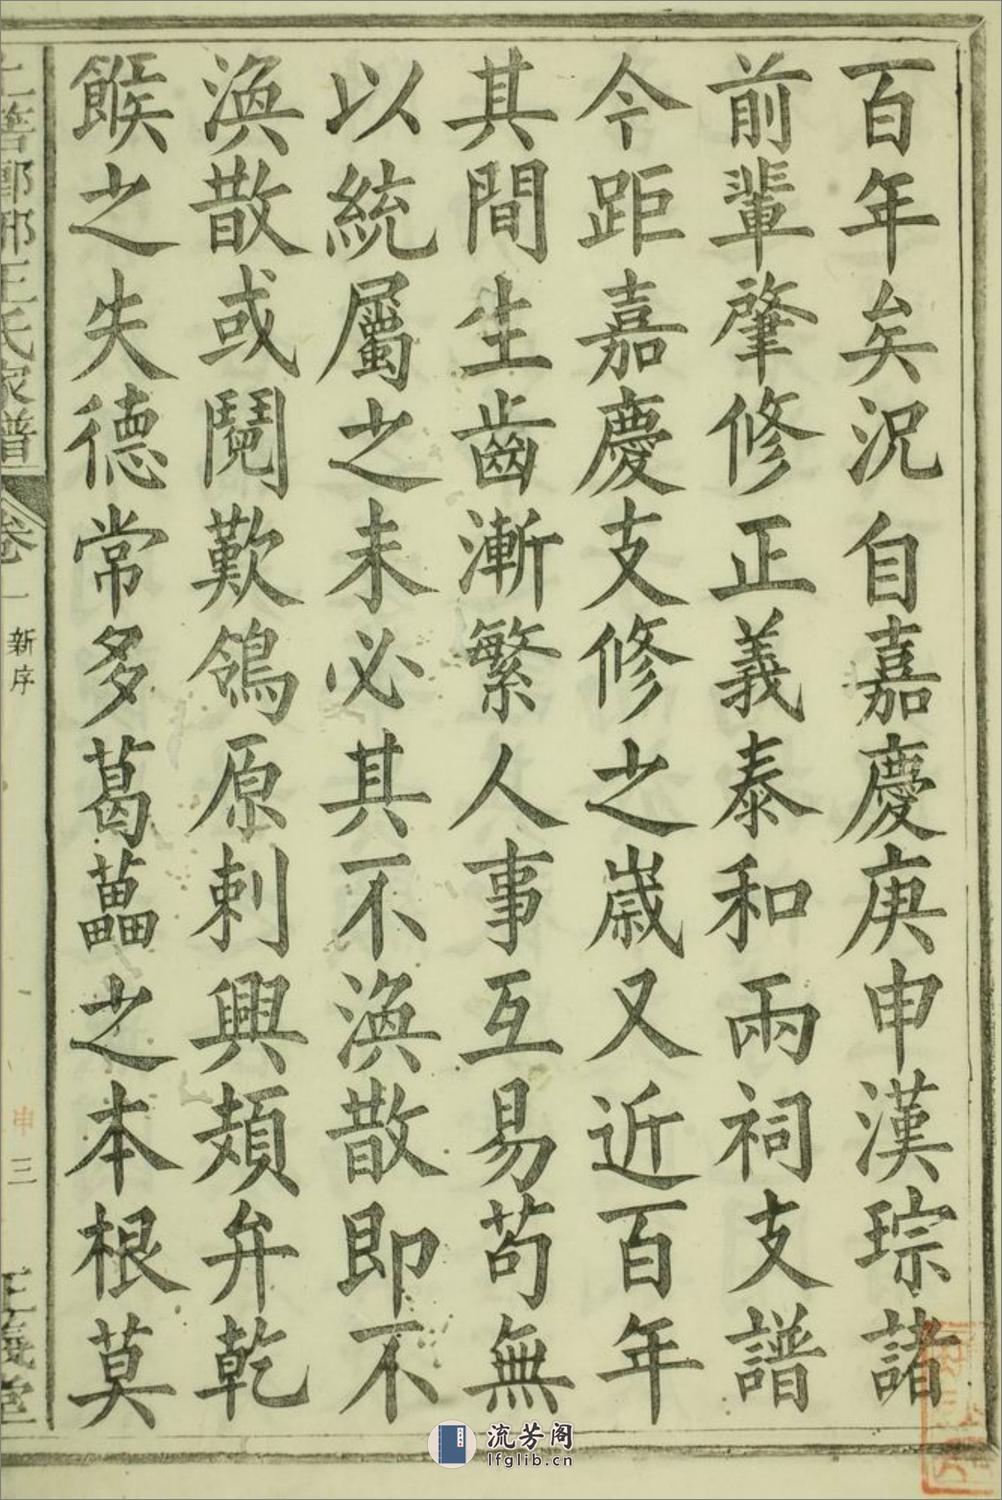 百年矣況自嘉慶庚申漢琮諸
前輩肇修正義泰和兩祠支譜
今距嘉慶支修之歲又近百年
其間生齒漸繁人事互易苟無
以統屬之未必其不渙散即不
渙散或鬩歎鴒原刺興頍弁乾
餱之失德常多葛藟之本根莫
王氏家譜
卷一
新序
申
三
三義堂
流芳阁
lfglib.cn